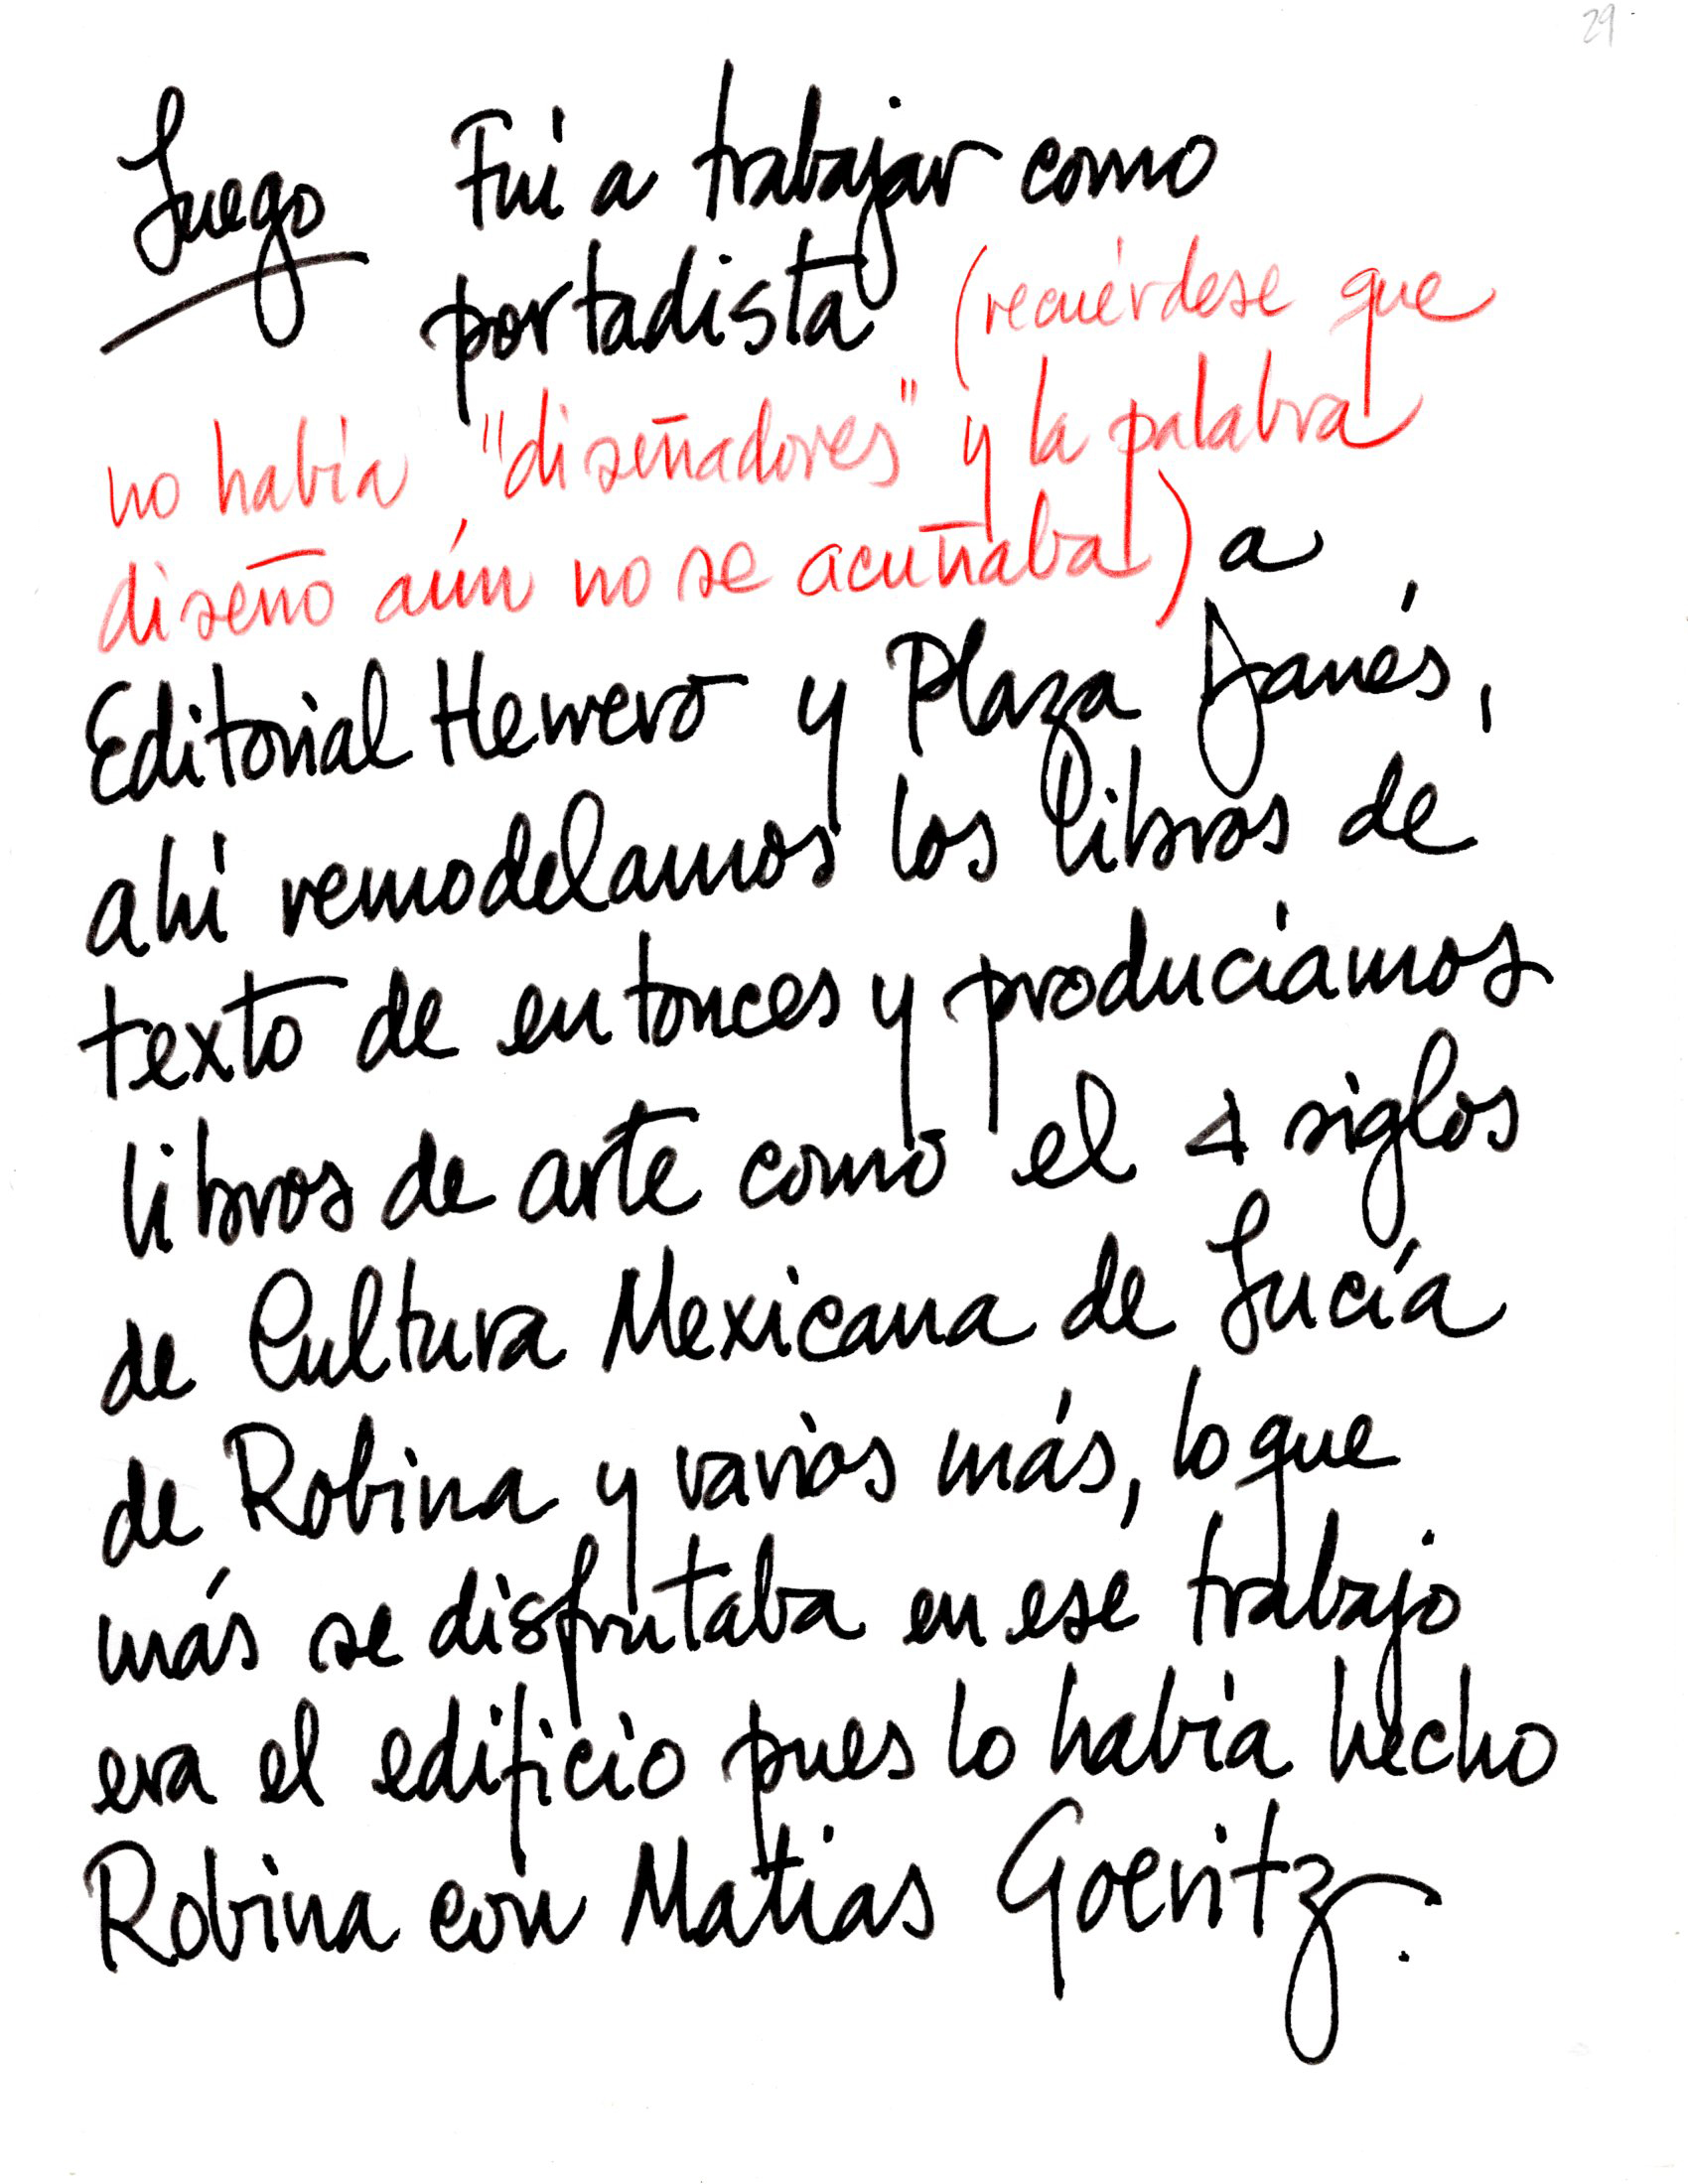 29
Luego Fui a trabajar como
portadista (recuérdese que
no había "diseñadores" y la palabra
diseño aún no se acuñaba) a
Editorial Herrero y Plaza Janés,
ahí remodelamos los libros de
texto de entonces y producíamos
libros de arte como el 4 siglos
de Cultura Mexicana de Lucía
de Robina y varios más, lo que
más se disfrutaba en ese trabajo
era el edificio pues lo había hecho
Robina con Matias Goeritz.